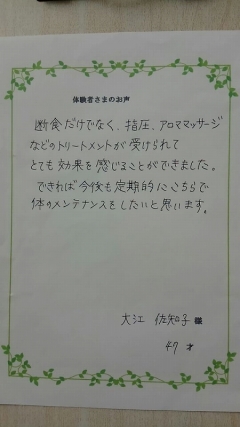 体験者さまのお声
断食だけでなく、指圧、アロママッサージ
などのトリートメントが受けられて
とても効果を感じることができました。
できれば今後も定期的にこちらで
体のメンテナンスをしたいと思います。
大江 佐知子 様
47 才